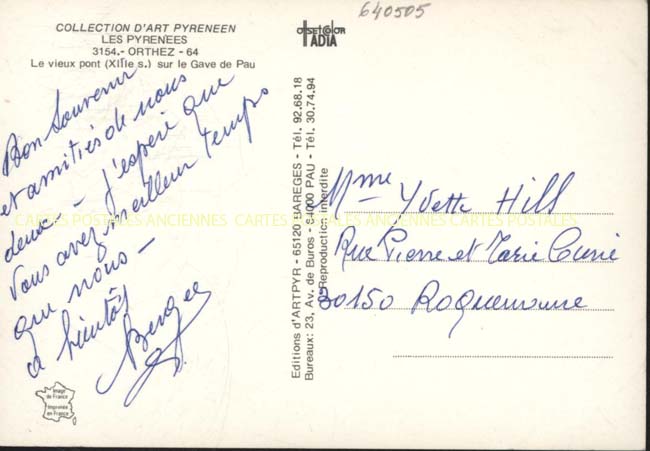 640505
COLLECTION D'ART PYRENEEN
LES PYRENEES
3154.- ORTHEZ - 64
Le vieux pont (XIIIe s.) sur le Gave de Pau
OFFSETCOLOR
IADIA
Bon Souvenir
et amitiés de nous
deux - J'espère que
vous avez meilleur temps
que nous -
à bientôt
Editions d'ARTPYR - 65120 BAREGES - Tél. 92.68.18
Bureaux: 23, Av. de Buros - 64000 PAU - Tél. 30.74.94
Reproduction interdite
Mme Yvette Hill
Rue Pierre et Marie Curie
30150 Roquemaure
CARTES POSTALES ANCIENNES CARTES POSTALES ANCIENNES CARTES POSTALES
Image
de France
Imprimée
en France